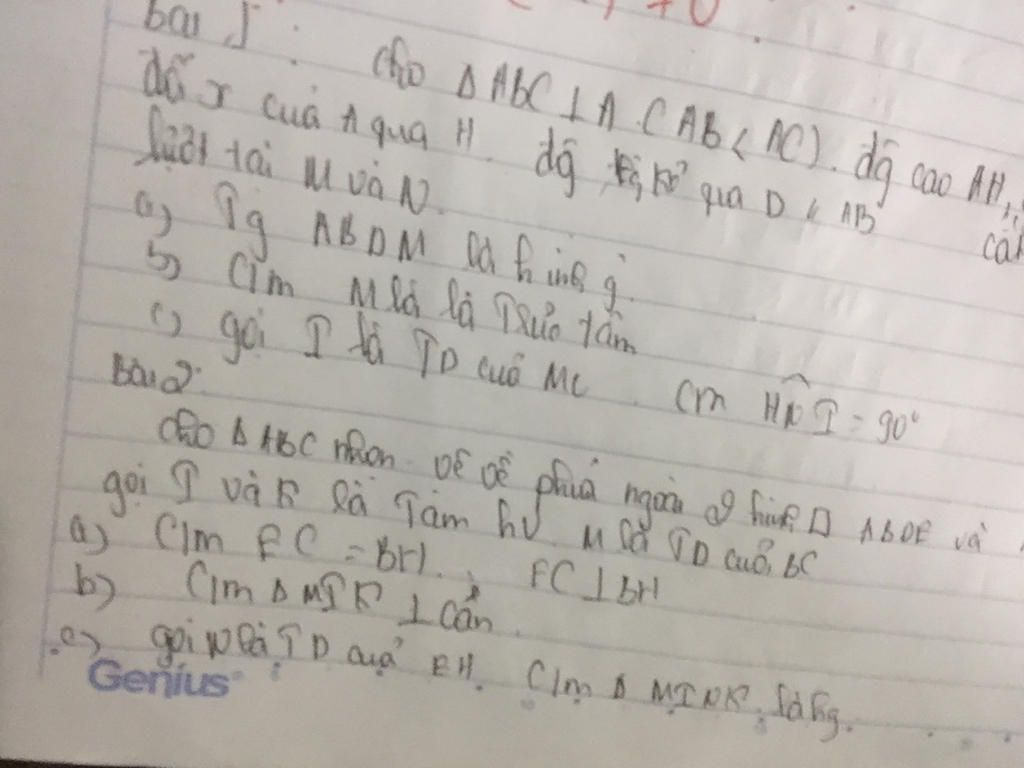 bài 1:
cho Δ ABC ⊥ A. (AB < AC). đg cao AH,
đối x cuả A qua H. đg kẻ qua D // AB
lượt tại M và N.
a) Tg ABDM là hình gì.
b) C/m M là là Trực tâm
c) gọi I là TD cuả MC. Cm HNI = 90°
Bài 2:
cho Δ ABC nhọn. vẽ về phiá ngoài hình □ ABDE và
gọi I và K là Tâm hv M là TD cuả BC
a) C/m EC = BH. EC ⊥ BH
b) C/m Δ MIK ⊥ cân.
c) gọi N là TD cuả EH. C/m Δ MINK là hg.
Genius